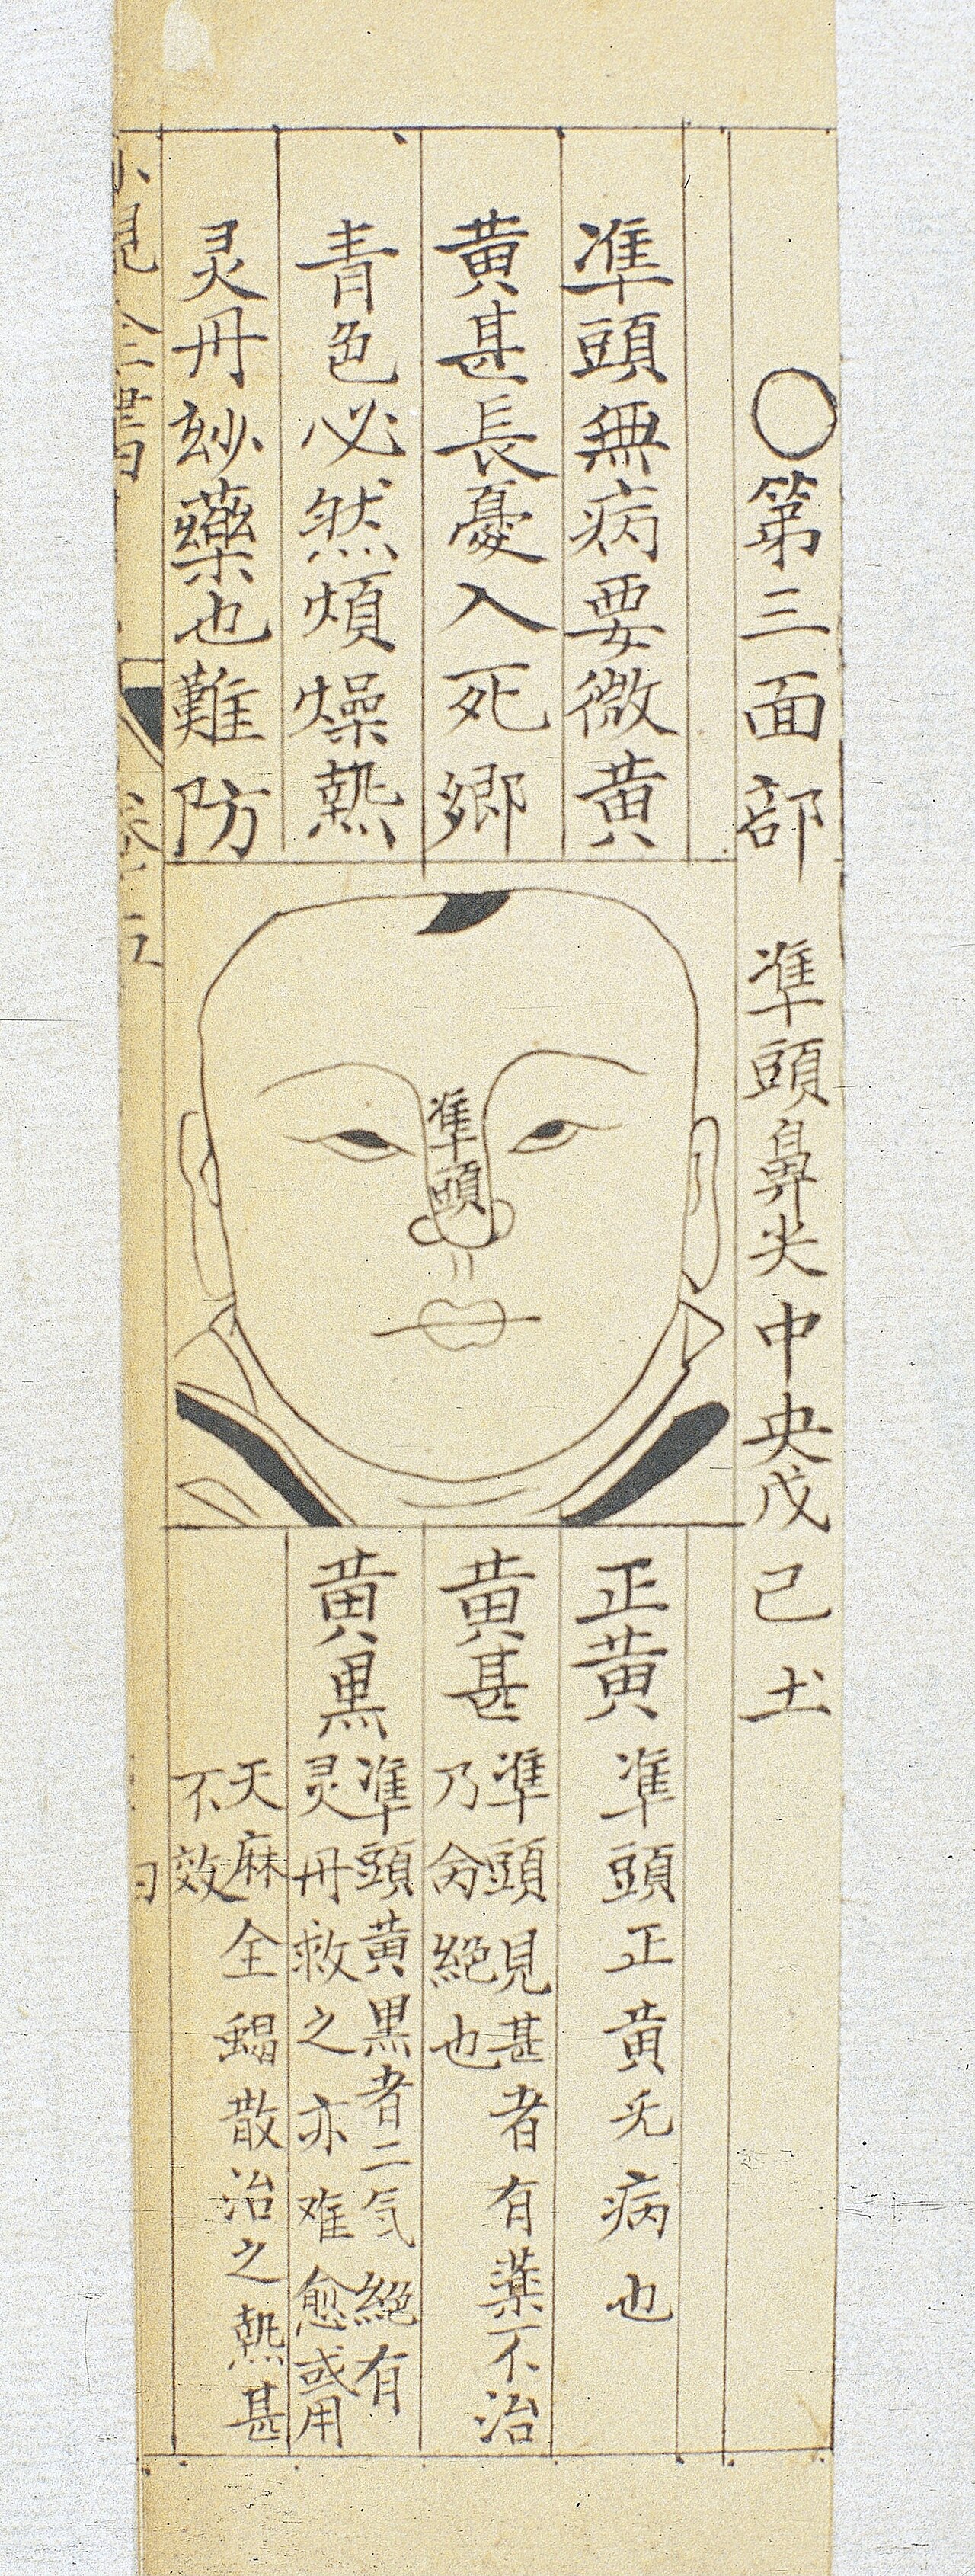 〇第三面部 準頭鼻尖中央戊己土
準頭無病要微黃
黃甚長憂入死鄉
青色必然煩燥熱
灵丹玅藥也難防
準頭
正黃 準頭正黃旡病也
黃甚 準頭見甚者有藥不治
乃命絕也
黃黒 準頭黃黒者二气絕有
灵丹救之亦难愈或用
天麻全蝎散治之熱甚
不效
小兒全書